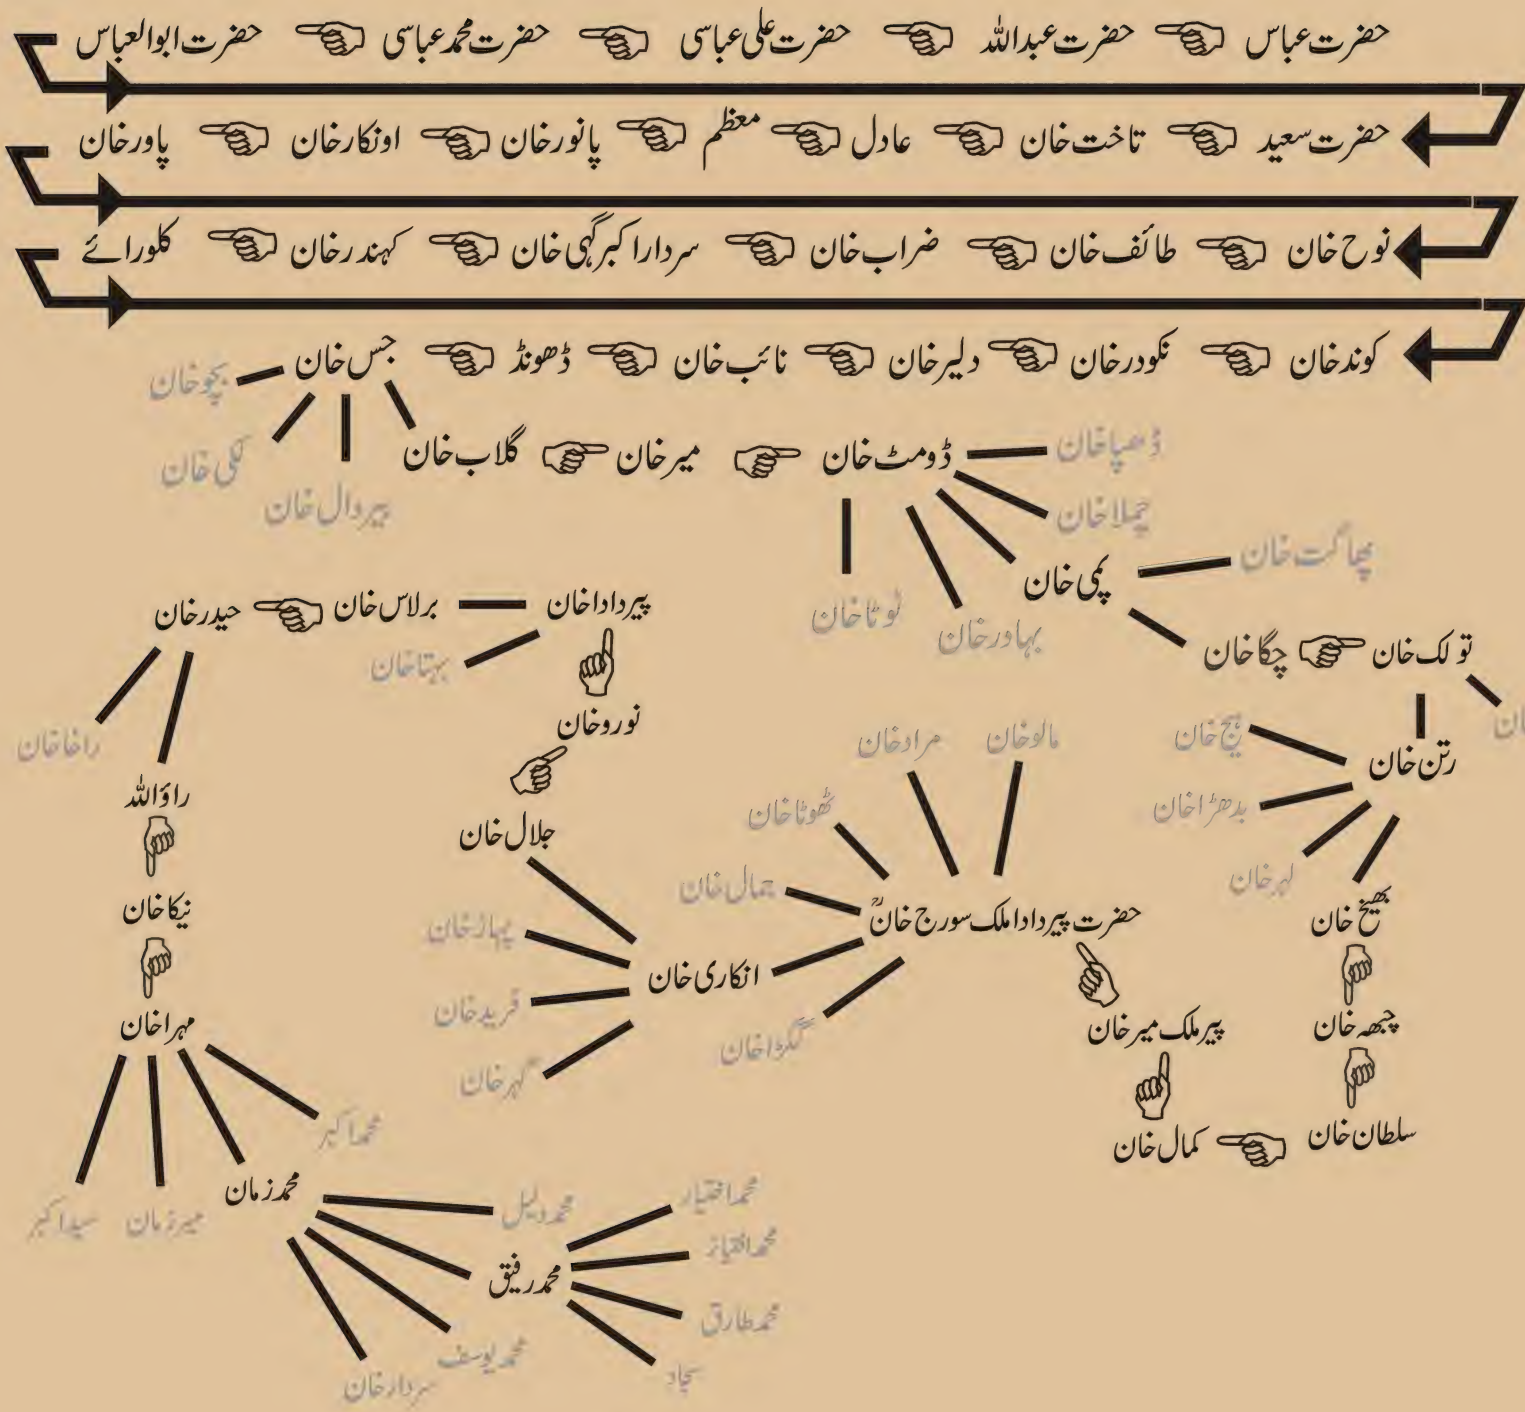 حضرت عباس حضرت عبداللہ حضرت علی عباسی حضرت محمد عباسی حضرت ابوالعباس
حضرت سعید تاخت خان عادل معظم پانور خان اونکار خان پاور خان
نوح خان طائف خان ضراب خان سردار اکبر گہی خان کہندر خان کلورائے
کوند خان نکودر خان دلیر خان نائب خان ڈھونڈ جس خان
بچو خان
لکی خان
پیردال خان
گلاب خان میر خان ڈومٹ خان
ڈھپا خان
چملا خان
پمی خان
بہادر خان
ٹوٹا خان
پھاگت خان
چگا خان تولک خان
رتن خان
پیج خان
بدھڑا خان
لہر خان
بھیخ خان
چبھہ خان
سلطان خان
کمال خان
پیر ملک میر خان
حضرت پیر دادا ملک سورج خانؒ
مالو خان
مراد خان
ٹھوٹا خان
جمال خان
انکاری خان
گکڑا خان
جلال خان
پہاڑ خان
فرید خان
گہر خان
نورو خان
پیر دادا خان
برلاس خان
بہتا خان
حیدر خان
راخا خان
راؤ اللہ
نیکا خان
مہرا خان
محمد اکبر
محمد زمان
میر زمان
سید اکبر
محمد دلیل
محمد رفیق
محمد یوسف
سردار خان
محمد اختیار
محمد افتیاز
محمد طارق
سجاد